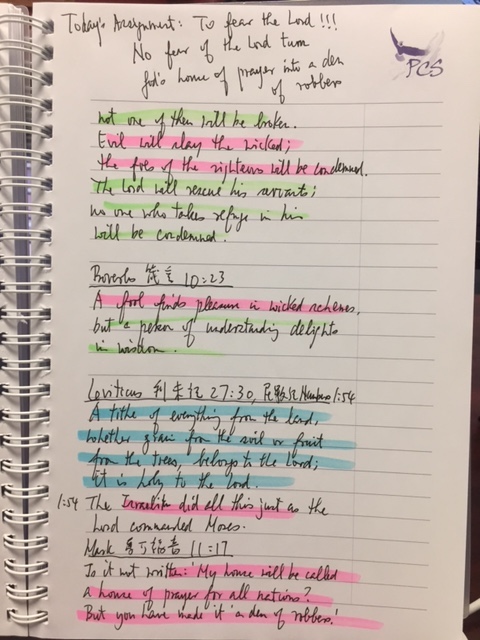 Today's Assignment: To fear the Lord!!!
No fear of the Lord turn
God's home of prayer into a den
of robbers
PCS
not one of them will be broken.
Evil will slay the wicked;
the foes of the righteous will be condemned.
The Lord will rescue his servants;
no one who takes refuge in him
will be condemned.
Proverbs 箴言 10:23
A fool finds pleasure in wicked schemes,
but a person of understanding delights
in wisdom.
Leviticus 利未記 27:30, 民數記 Numbers 1:54
A tithe of everything from the land,
whether grain from the soil or fruit
from the trees, belongs to the Lord;
it is holy to the Lord.
1:54 The Israelites did all this just as the
Lord commanded Moses.
Mark 馬可福音 11:17
Is it not written: 'My house will be called
a house of prayer for all nations'?
But you have made it 'a den of robbers.'